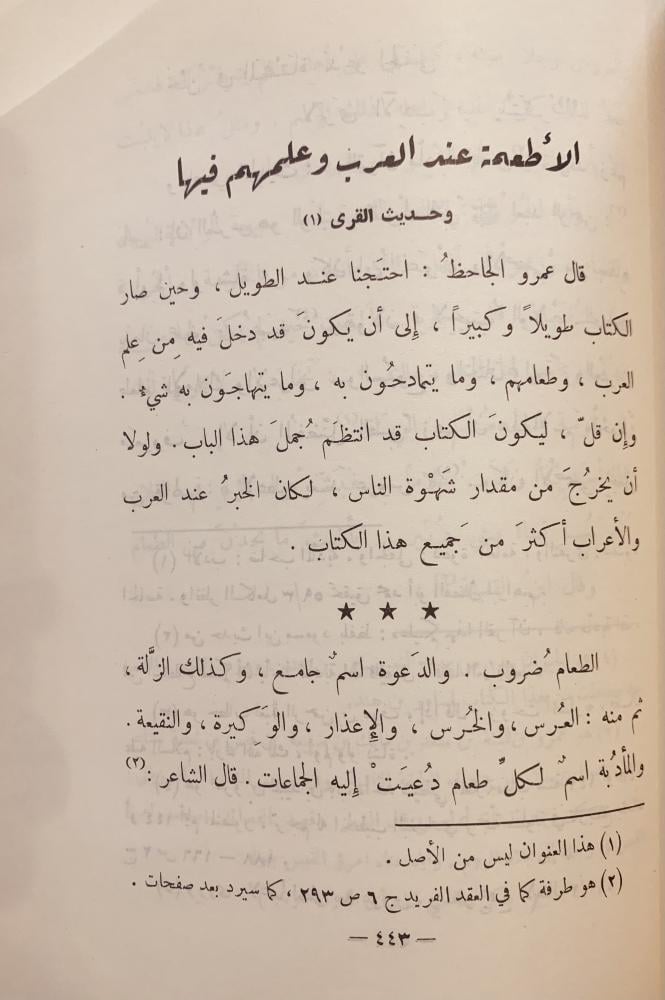 الأطعمة عند العرب وعلمهم فيها
وحديث القرى (١)
قال عمرو الجاحظُ : احتَجنا عند الطويل ، وحين صار
الكتاب طويلاً وكبيراً ، إلى أن يكونَ قد دخلَ فيه مِن عِلم
العرب ، وطعامهم ، وما يتمادحُون به ، وما يتهاجَون به شيءٌ .
وإن قلّ ، ليكونَ الكتاب قد انتظَم جُملَ هذا الباب . ولولا
أن يخرُجَ من مقدار شَهْوة الناس ، لكان الخبرُ عند العرب
والأعراب أكثرَ من جَميع هذا الكتاب .
★ ★ ★
الطعام ضُروب . والدَعوة اسمٌ جامع ، وكذلك الزلَّة ،
ثم منه : العُرس ، والخُرس ، والإعذار ، والوَكِيرة ، والنقيعة .
والمأدُبة اسمٌ لكلِّ طعام دُعيَتْ إليه الجماعات . قال الشاعر :(٢)
(١) هذا العنوان ليس من الأصل .
(٢) هو طرفة كما في العقد الفريد ج ٦ ص ٢٩٣ ، كما سيرد بعد صفحات .
— ٤٤٣ —